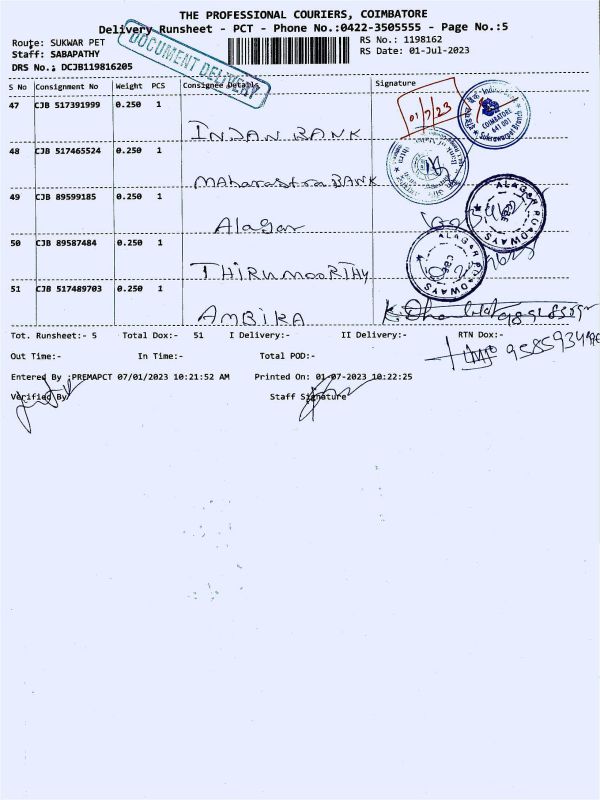 THE PROFESSIONAL COURIERS, COIMBATORE
Delivery Runsheet - PCT - Phone No.:0422-3505555 - Page No.:5
Route: SUKWAR PET
RS No.: 1198162
Staff: SABAPATHY
RS Date: 01-Jul-2023
DRS No.: DCJB119816205
DOCUMENT DELIVERY
S No Consignment No Weight PCS Consignee Details Signature
47 CJB 517391999 0.250 1
01/7/23
COIMBATORE
641 001
INDAN BANK
48 CJB 517465524 0.250 1
Maharastra BANK
49 CJB 89599185 0.250 1
Alagar
ALAGAR ROADWAYS
CBE
50 CJB 89587484 0.250 1
THIRUMOORTHY
ALAGAR ROADWAYS
CBE
51 CJB 517489703 0.250 1
AMBIKA
Tot. Runsheet:- 5 Total Dox:- 51 I Delivery:- II Delivery:- RTN Dox:-
Out Time:- In Time:- Total POD:-
Entered By :PREMAPCT 07/01/2023 10:21:52 AM Printed On: 01-07-2023 10:22:25
Verified By Staff Signature